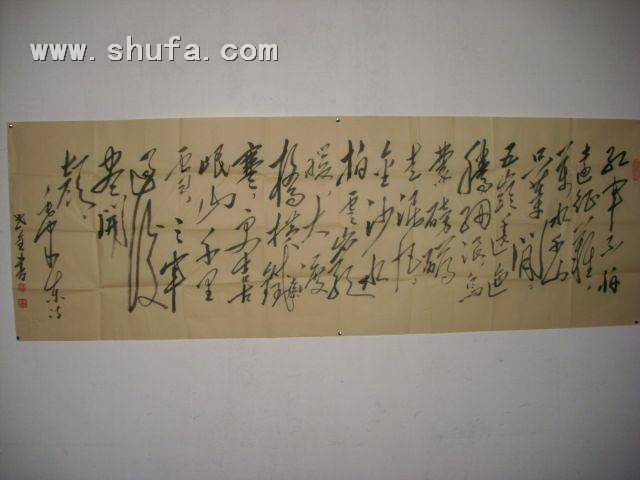 www.shufa.com
红军不怕
远征难
万水千山
只等闲
五岭逶迤
腾细浪乌
蒙磅礴
走泥丸
金沙水
拍雲崖
暖大渡
橋横鐵索
寒更喜
岷山千里
雪三军
过后
尽開
颜
毛泽东诗
書